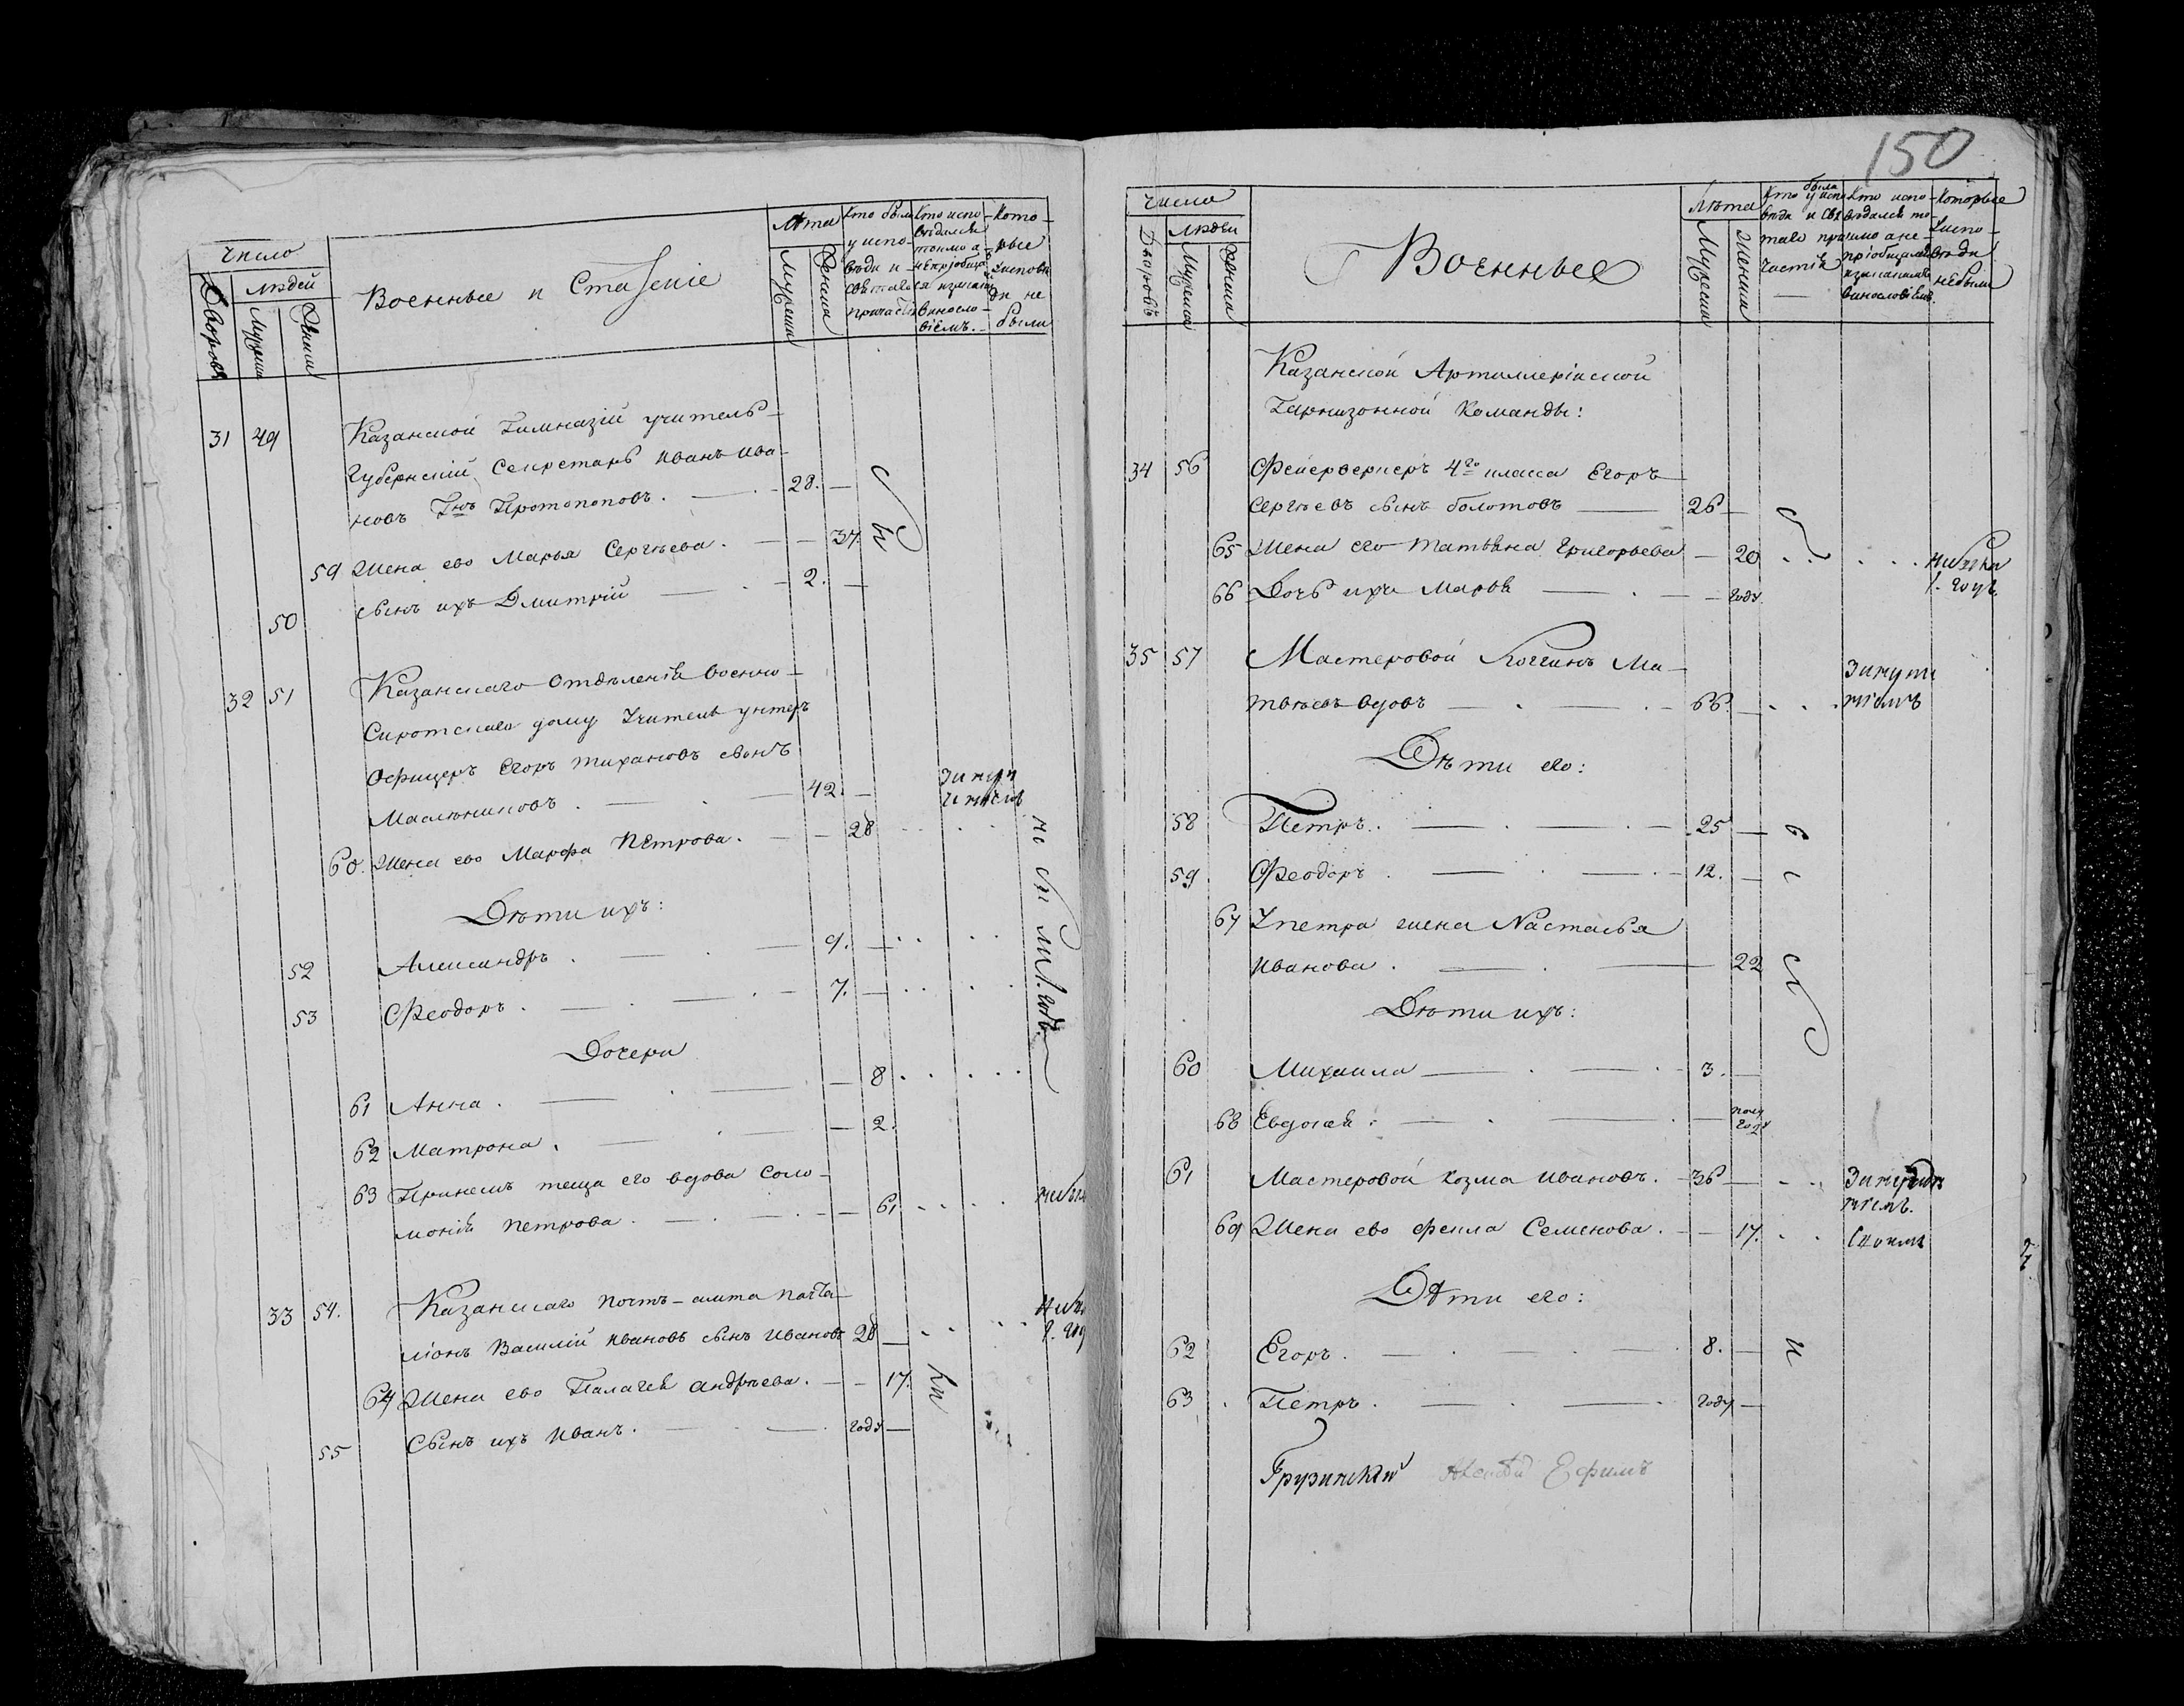 Число
Людей
Дворовъ
Мужеска
Женска
Военные и Статские
Лѣта
Мужеска
Женска
Кто были
у испо-
вѣди и
святаго
причастія
Кто испо-
вѣдался
токмо а
не пріобща
винословіемъ
Кото-
рые
у исповѣ
ди не
были
31 49 Казанской Гимназіи учитель
Губернскій Секретарь Иванъ Ива-
новъ Г-нъ Протопоповъ. 28.
59 Жена ево Марья Сергѣева. 34
50 сынъ ихъ Дмитрій 2.
32 51 Казанскаго Отдѣленія военно-
Сиротскаго дому Учитель унтеръ
Офицеръ Егоръ Тихановъ сынъ
Масленниковъ. 42.
60. Жена ево Марфа Петрова. 28
Дѣти ихъ:
52 Александръ. 9.
53 Феодоръ. 7.
Дочери
61 Анна. 8
62 Матрона. 2.
63 теща его вдова Соло-
монія Петрова. 61
33 54. Казанскаго Постъ-амта почта
ліонъ Василій Ивановъ сынъ Ивановъ 28
64 Жена ево Палагея Андрѣева. 17.
55 Сынъ ихъ Иванъ. году
150
Число
Людей
Дворовъ
Мужеска
Женска
Военные
Лѣта
Мужеска
Женска
Кто были
у испо
вѣди и свя
таго при
частія
Кто испо-
вѣдался то
кмо а не
пріобщался
винословіемъ.
Которые
у испо-
вѣди
не были
Казанской Артиллерійской
Гарнизонной Команды:
34 56 Фейерверкеръ 4го класса Егоръ
Сергѣевъ сынъ Болотовъ 26
65 Жена его Татьяна Григорьева 20
66 Дочь ихъ Марья году
35 57 Мастеровой Логгинъ Ма-
твѣевъ вдовъ 66.
Дѣти его:
58 Петръ. 25
59 Феодоръ. 12.
67 У Петра жена Настасья
Иванова. 22
Дѣти ихъ:
60 Михаила 3.
68 Евдокія. полу
году
61 Мастеровой Козма Ивановъ. 36
69 Жена ево Фекла Семенова. 17.
Дѣти его:
62 Егоръ. 8.
63 Петръ. году
Грузинскій Ефимъ